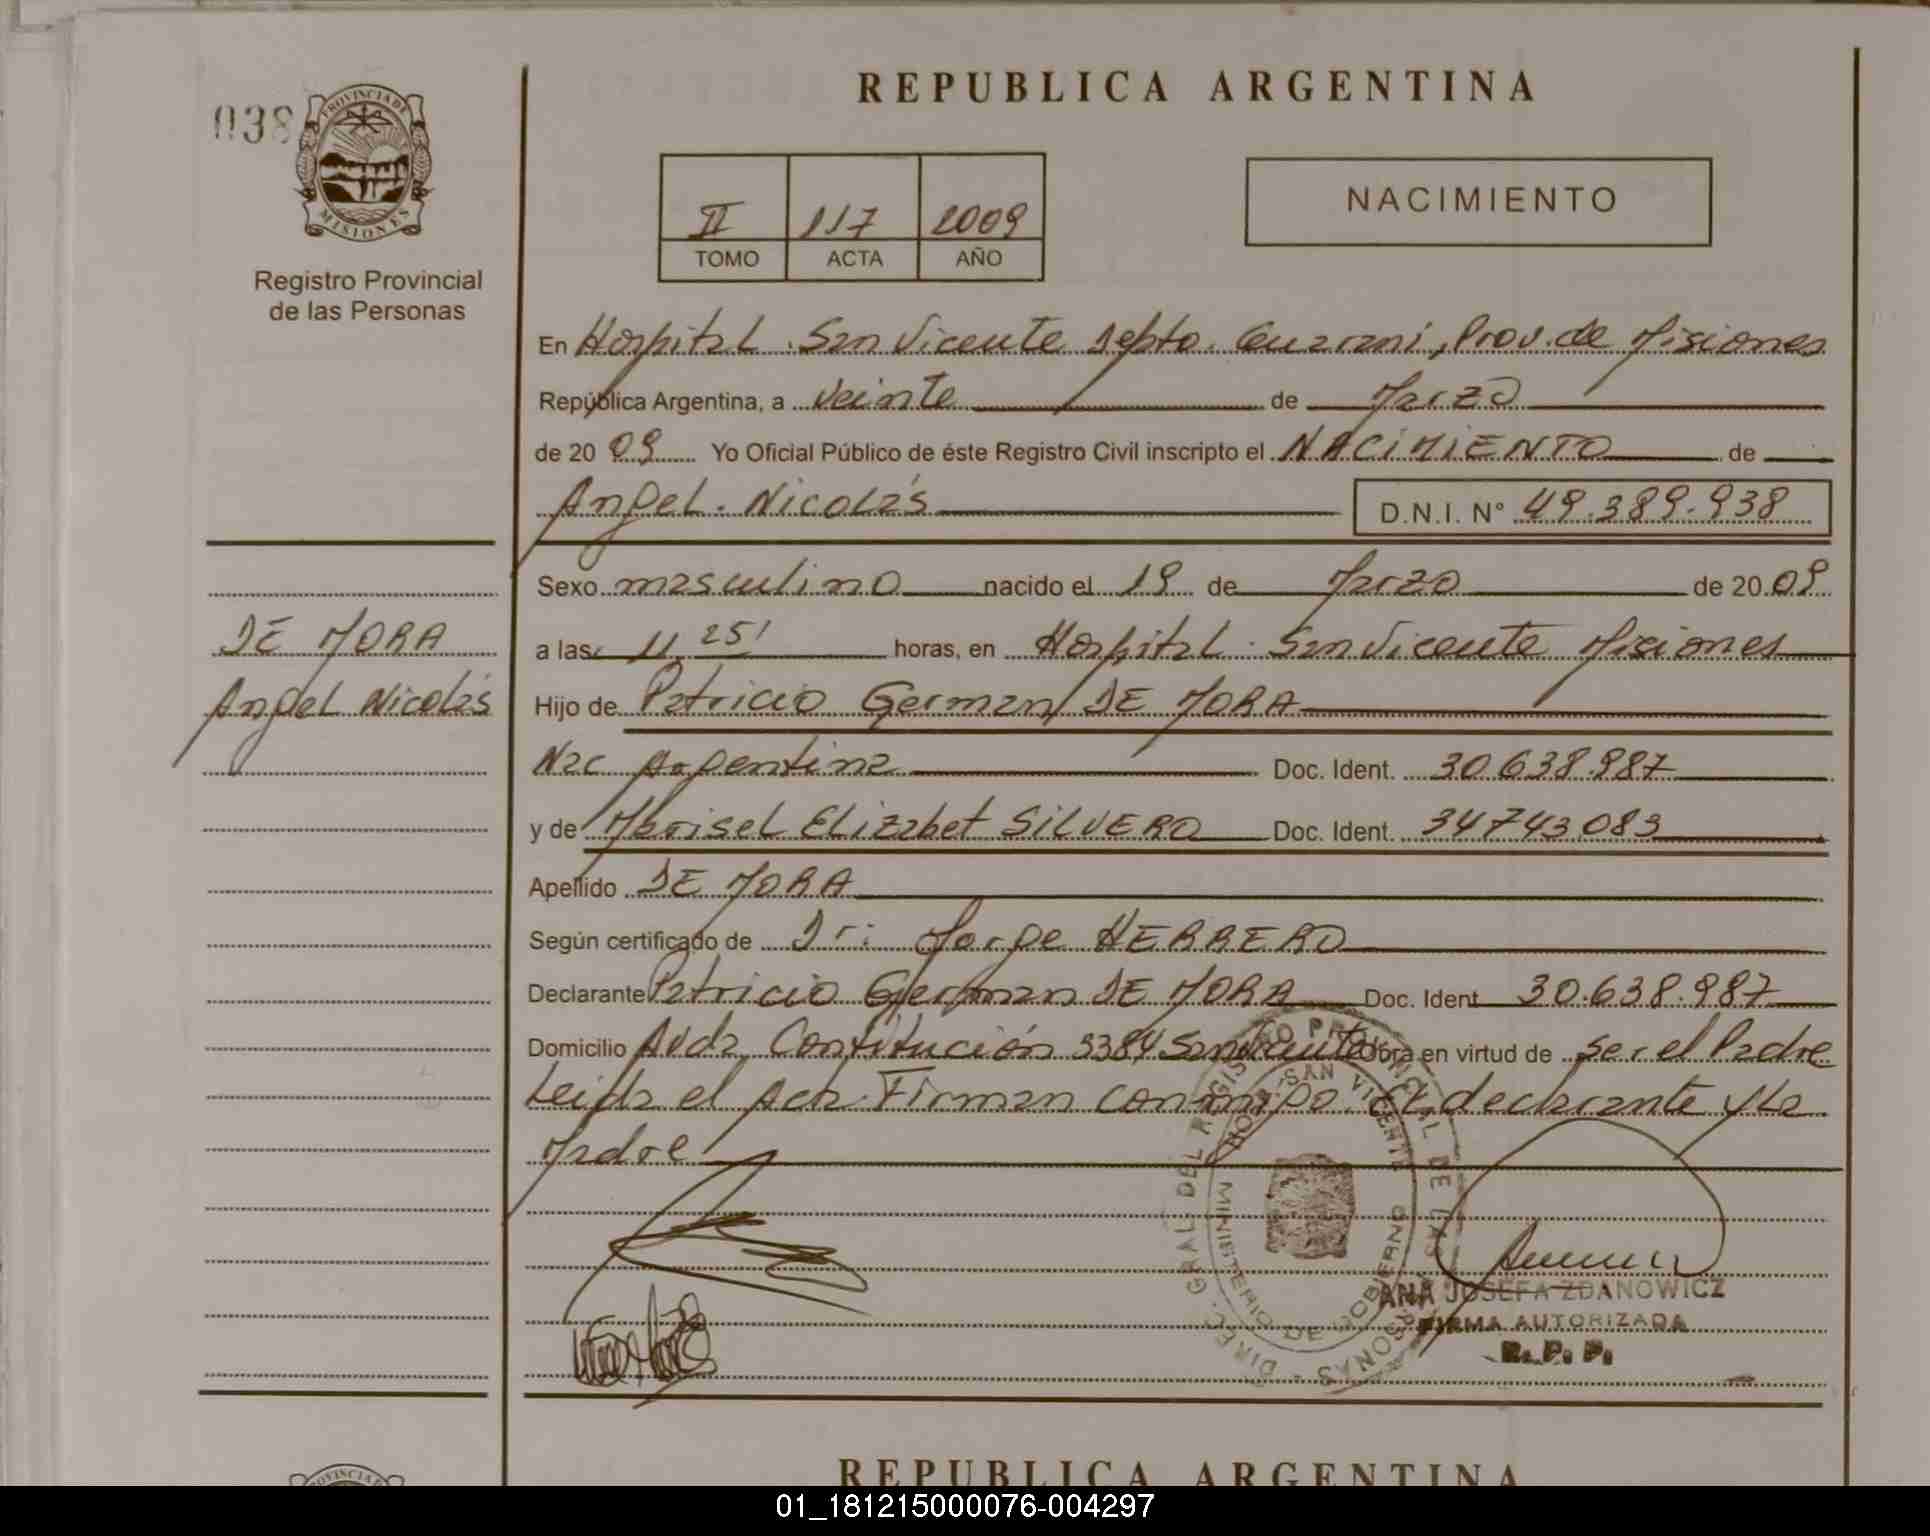 REPUBLICA ARGENTINA
038
PROVINCIA DE
MISIONES
Registro Provincial
de las Personas
II 117 2009
TOMO ACTA AÑO
NACIMIENTO
En Hospital San Vicente Depto. Guaraní, Prov. de Misiones
República Argentina, a veinte de Marzo
de 20 09 Yo Oficial Público de éste Registro Civil inscripto el NACIMIENTO de
Angel Nicolás D.N.I. N° 49.389.938
Sexo masculino nacido el 19 de Marzo de 20 09
a las 11 25' horas, en Hospital San Vicente Misiones
DE MORA
Angel Nicolás
Hijo de Patricio German DE MORA
Nac Argentina Doc. Ident. 30.638.987
y de Marisel Elizabet SILVERO Doc. Ident. 34743083
Apellido DE MORA
Según certificado de Dr: Jorge HERRERO
Declarante Patricio German DE MORA Doc. Ident 30.638.987
Domicilio Avda Constitución San Vicente Obra en virtud de ser el Padre
Leida el Acta Firman conmigo El declarante y La
Madre
DIREC. GRAL. DEL REGISTRO PROVINCIAL DE LAS PERSONAS
SAN VICENTE
MINISTERIO DE GOBIERNO
ANA JOSEFA ZDANOWICZ
FIRMA AUTORIZADA
R. P. P.
PROVINCIA DE
REPUBLICA ARGENTINA
01_181215000076-004297